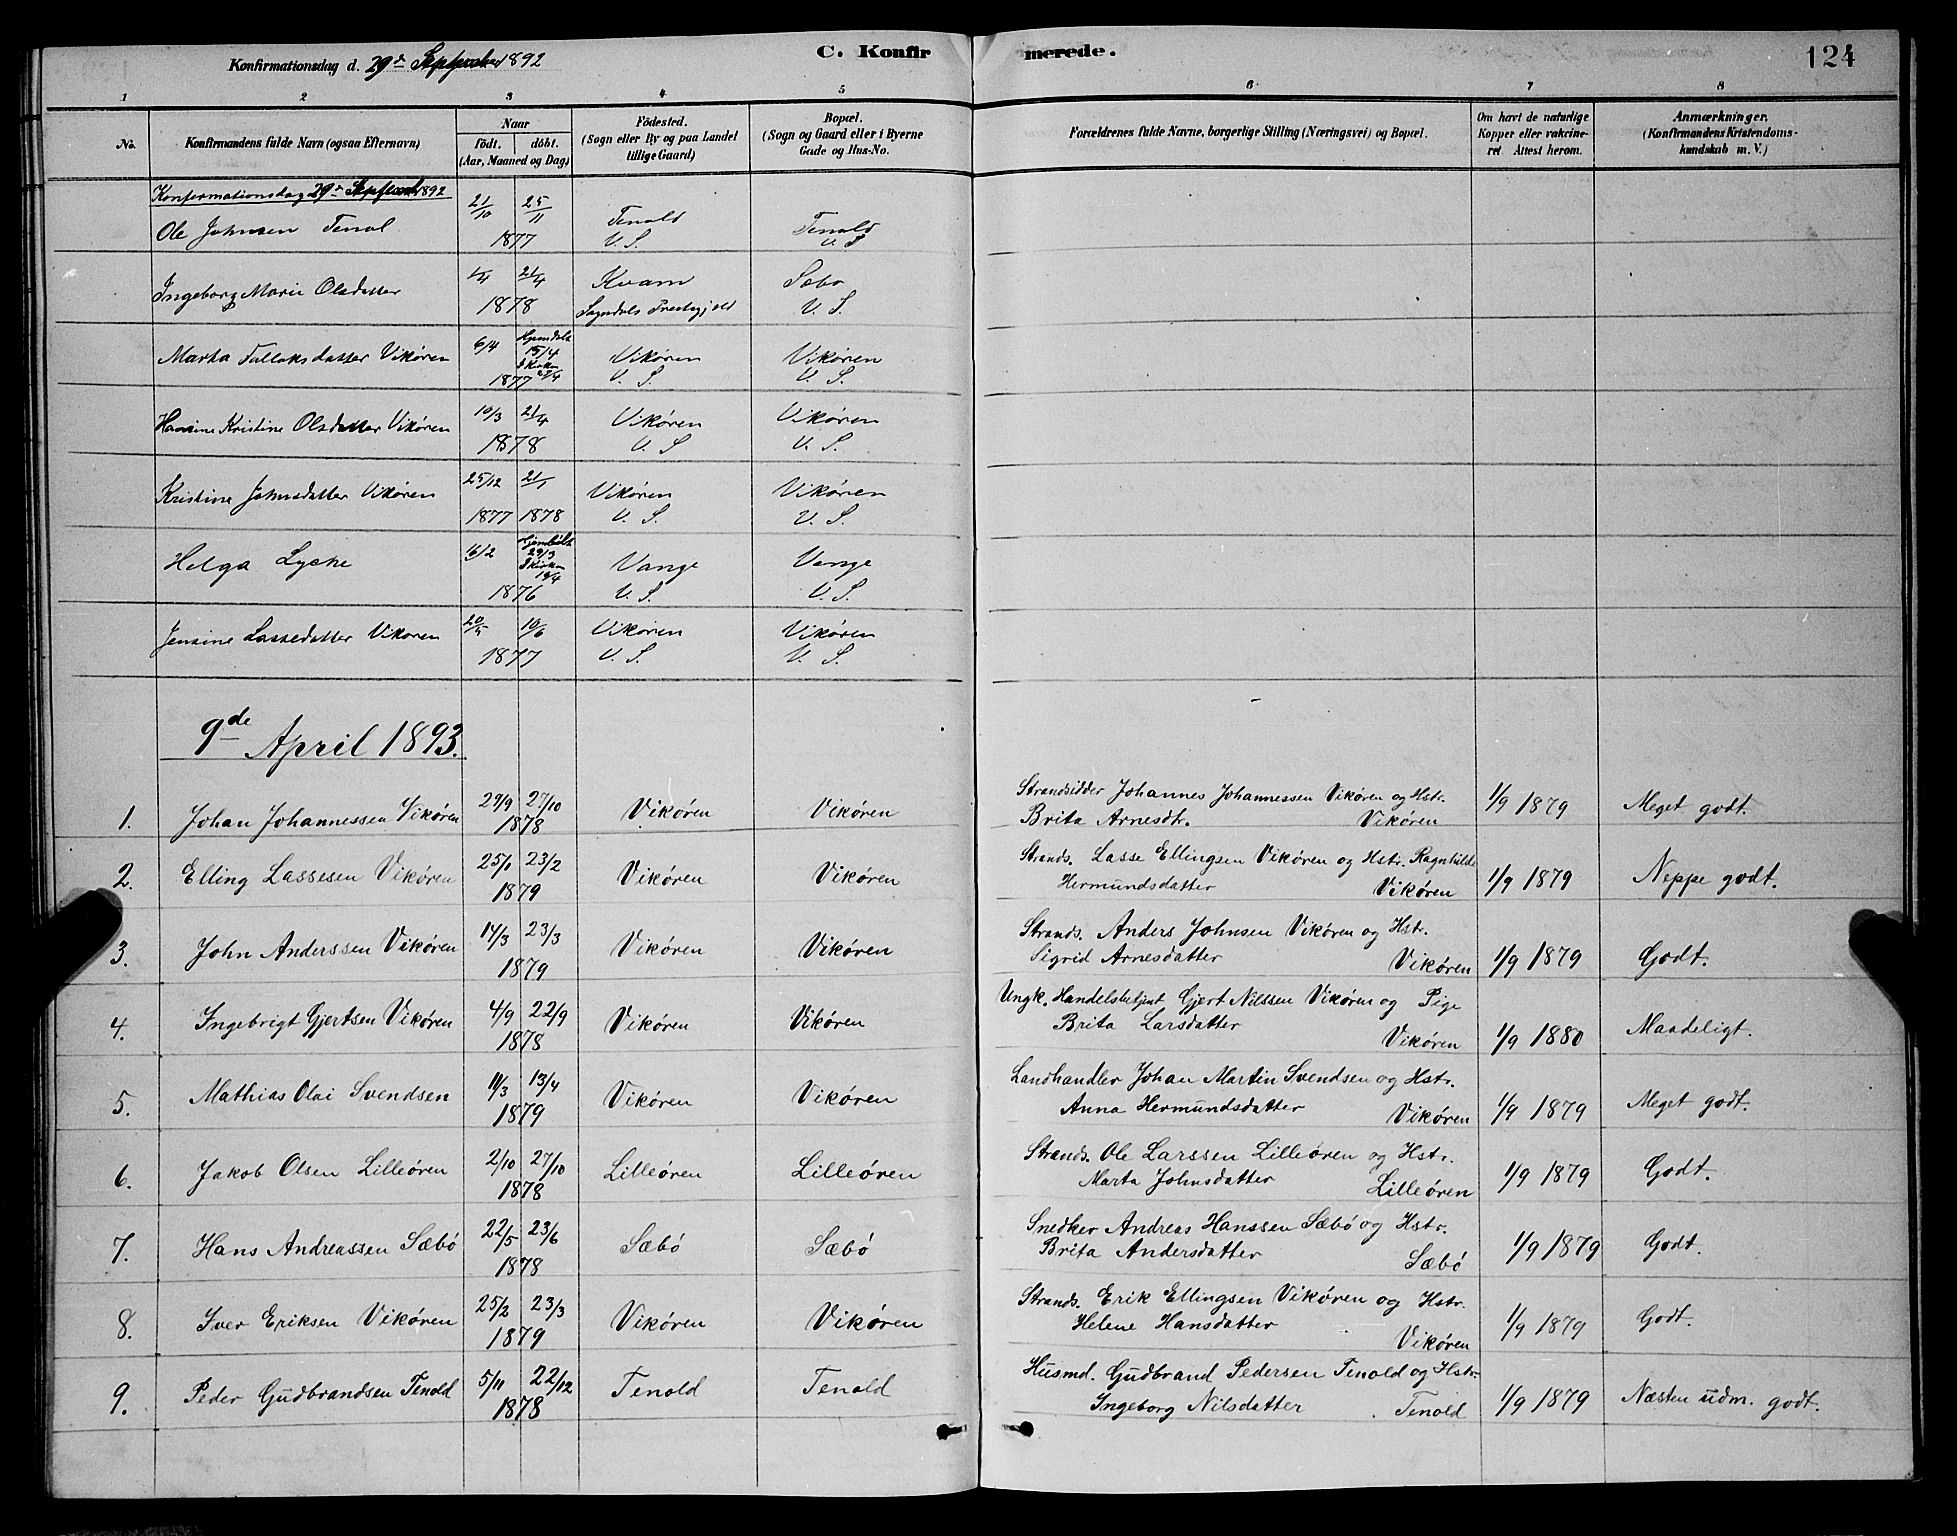 Konfirmationsdag d. 29de September 1892
C. Konfirmerede.
124
1 2 3 4 5 6 7 8
No. Konfirmandens fulde Navn (ogsaa Efternavn) Naar født. døbt. (Aar, Maaned og Dag) Fødested. (Sogn eller By og paa Landet tillige Gaard) Bopæl. (Sogn og Gaard eller i Byerne Gade og Hus-No. Forældrenes fulde Navne, borgerlige Stilling (Næringsvei) og Bopæl. Om havt de naturlige Kopper eller vakcineret. Attest herom. Anmærkninger. (Konfirmandens Kristendomskundskab m. V.)
Konfirmationsdag 29de September 1892
Ole Johnsen Tenol 21/10 25/11 Tenold Tenold
1877 V. S. V. S
Ingeborg Marie Olsdatter 1/4 21/4 Kvam Sæbo
1878 Sogndals Prestegjeld V. S.
Marta Tollaksdatter Vikøren 6/4 Hjemdøbt 15/4 I Kirken 22/4 Vikøren Vikøren
1877 V. S. V. S.
Hansine Kristine Olsdatter Vikøren 10/3 21/4 Vikøren Vikøren
1878 V. S V. S.
Kristine Johnsdatter Vikøren 25/12 21/1 Vikøren Vikøren
1877 1878 V. S. V. S.
Helga Lyche 16/2 Hjemdøbt 29/3 I Kirken 19/4 Vange Vange
1876 V. S. V. S.
Jensine Lassedatter Vikøren 20/5 10/6 Vikøren Vikøren
1877 V. S. V. S.
9de April 1893.
1. Johan Johannessen Vikøren 29/9 27/10 1878 Vikøren Vikøren Strandsidder Johannes Johannessen Vikøren og Hstr. 1/9 1879 Meget godt.
Brita Arnesdtr. Vikøren
2. Elling Lassesen Vikøren 25/1 23/2 1879 Vikøren Vikøren Strands. Lasse Ellingsen Vikøren og Hstr. Ragnhilde 1/9 1879 Neppe godt.
Hermundsdatter Vikøren
3. John Anderssen Vikøren 14/3 23/3 1879 Vikøren Vikøren Strands. Anders Johnsen Vikøren og Hstr. 1/9 1879 Godt.
Sigrid Arnesdatter Vikøren
4. Ingebrigt Gjertsen Vikøren 4/9 22/9 1878 Vikøren Vikøren Ungk. Handelsbetjent Gjert Nilssen Vikøren og Pige 1/9 1880 Maadeligt.
Brita Larsdatter Vikøren
5. Mathias Olai Svendsen 11/3 13/4 1879 Vikøren Vikøren Landhandler Johan Martin Svendsen og Hstr. 1/9 1879 Meget godt.
Anna Hermundsdatter Vikøren
6. Jakob Olsen Lilleøren 2/10 27/10 1878 Lilleøren Lilleøren Strands. Ole Larssen Lilleøren og Hstr. 1/9 1879 Godt.
Marta Johnsdatter Lilleøren
7. Hans Andreassen Sæbö 22/5 23/6 1878 Sæbö Sæbö Snedker Andreas Hanssen Sæbö og Hstr. 1/9 1879 Godt.
Brita Andersdatter Sæbö
8. Iver Eriksen Vikøren 25/2 23/3 1879 Vikøren Vikøren Strands. Erik Ellingsen Vikøren og Hstr. 1/9 1879 Godt.
Helene Hansdatter Vikøren
9. Peder Gudbrandsen Tenold 5/11 22/12 1878 Tenold Tenold Husmd. Gudbrand Pedersen Tenold og Hstr. 1/9 1879 Næsten udm. godt.
Ingeborg Nilsdatter Tenold